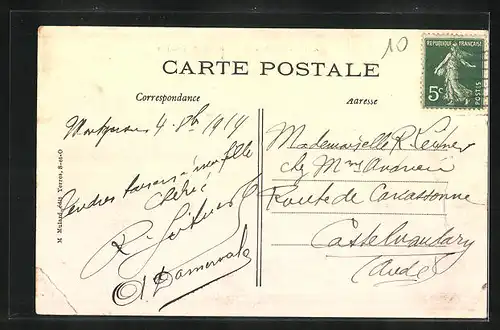 10
RÉPUBLIQUE FRANÇAISE
5c
POSTES
CARTE POSTALE
Correspondance
Adresse
4 1914
Tendres baisers à ma fille
Chérie
R.
Mademoiselle R.
chez Mme
Route de Carcassonne
Castelnaudary
(Aude)
M Mulard, édit Yerres, S-et-O